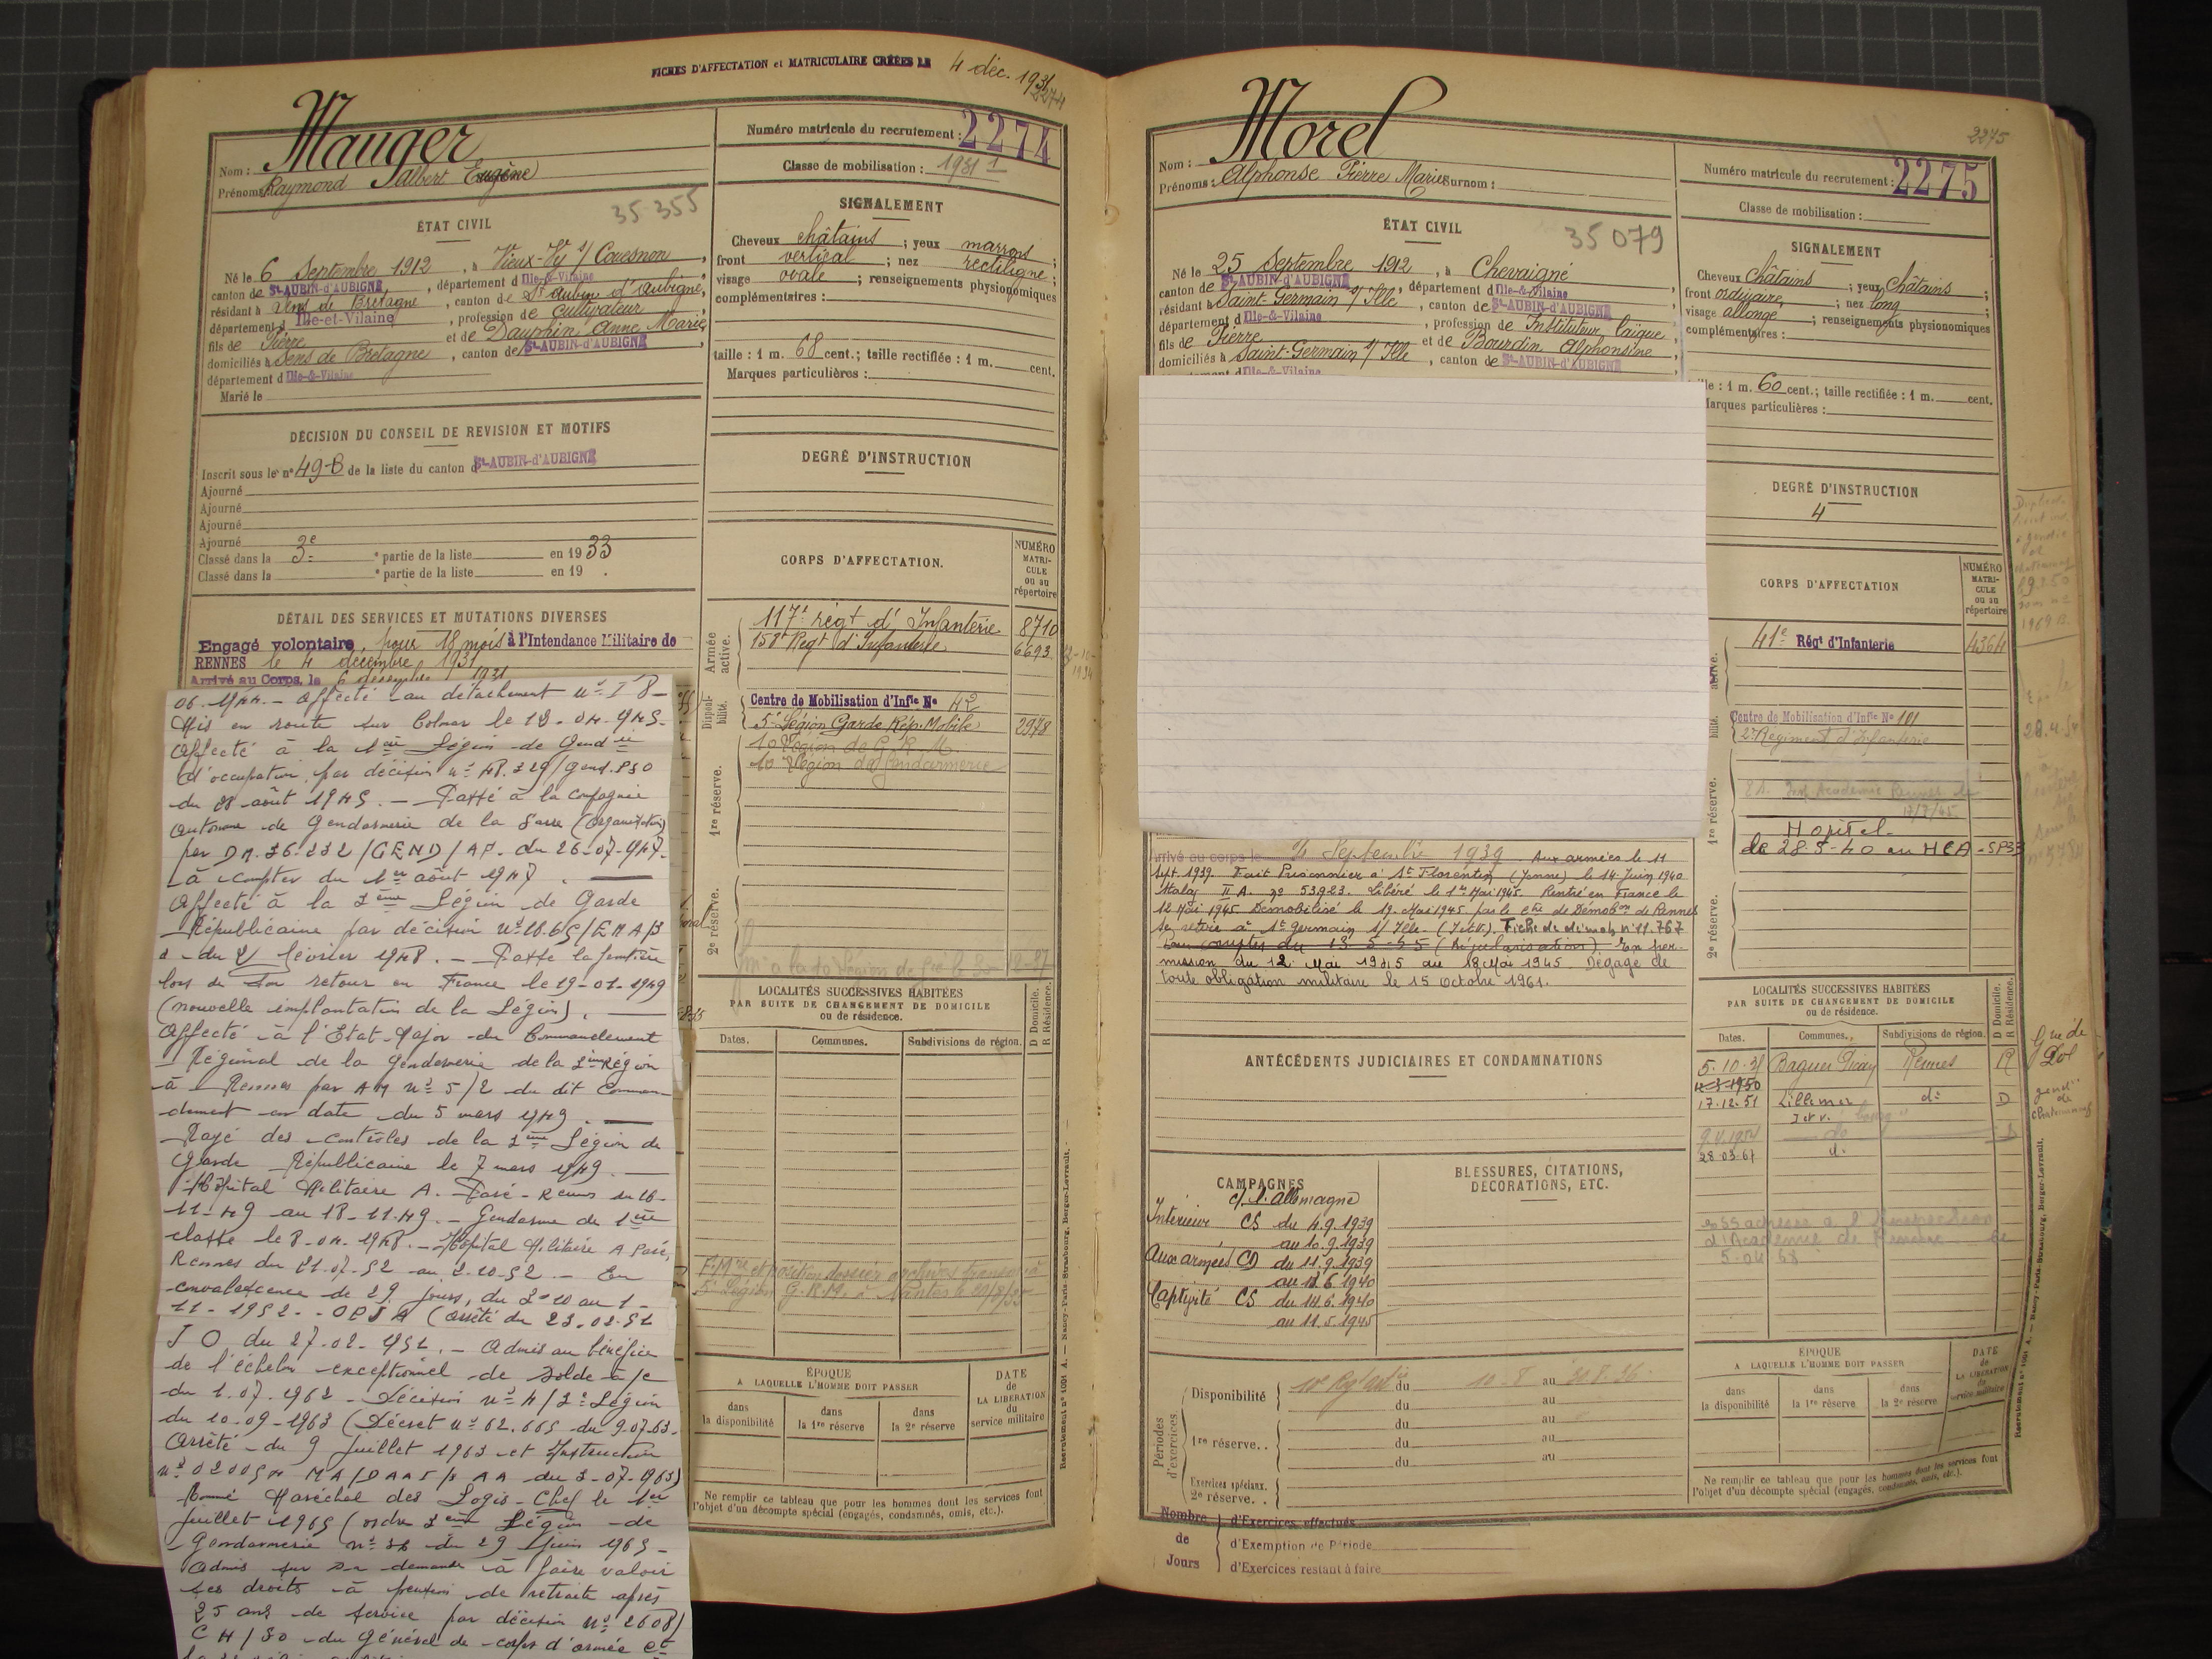 FICHES D'AFFECTATION et MATRICULAIRE CRÉÉES LE 4 déc. 1931
2274
Mauger
Nom :
Prénoms : Raymond Albert Eugène
Numéro matricule du recrutement : 2274
Classe de mobilisation : 1931
35.355
ÉTAT CIVIL
Né le 6 Septembre 1912, à Vieux-Vy s/ Couesnon,
canton de St-AUBIN-d'AUBIGNÉ, département d Ille-&-Vilaine
résidant à Sens de Bretagne, canton de St Aubin d'Aubigné,
département d Ille-et-Vilaine, profession de Cultivateur
fils de Pierre et de Dauphin Anne Marie
domiciliés à Sens de Bretagne, canton de St-AUBIN-d'AUBIGNÉ
département d Ille-&-Vilaine
Marié le
SIGNALEMENT
Cheveux châtains ; yeux marrons ;
front vertical ; nez rectiligne ;
visage ovale ; renseignements physionomiques
complémentaires :
taille : 1 m. 68 cent.; taille rectifiée : 1 m. cent.
Marques particulières :
DÉCISION DU CONSEIL DE REVISION ET MOTIFS
Inscrit sous le n° 49-B de la liste du canton d St-AUBIN-d'AUBIGNÉ
Ajourné
Ajourné
Ajourné
Ajourné
Classé dans la 3e partie de la liste en 1933
Classé dans la partie de la liste en 19 .
DEGRÉ D'INSTRUCTION
DÉTAIL DES SERVICES ET MUTATIONS DIVERSES
Engagé volontaire, pour 18 mois à l'Intendance Militaire de
RENNES le 4 décembre 1931
Arrivé au Corps, le 6 décembre 1931
06. 1944. - Affecté au détachement n° I 8 -
Mis en route sur Colmar le 19-04-945-
Affecté à la 1ère Légion de Gendie
d'occupation par décision n° 48.329/Gend.P30
du 08 août 1945. - Passé à la Compagnie
autonome de Gendarmerie de la Sarre (Organisation)
par DM.36.232/GEND/AP. du 26-07-947-
à compter du 1er août 1947.
Affecté à la 3ème Légion de Garde
Républicaine par décision
février 1948. - Passe la frontière
lors de son retour en France le 19-01-1949
(nouvelle implantation de la Légion).
Affecté à l'Etat-Major du Commandement
Régional de la Gendarmerie de la 3ème Région
à Rennes par AM n° 5/2 du dit Comman-
dement en date du 5 mars 1949.
Rayé des contrôles de la 3ème Légion de
Garde Républicaine le 7 mars 1949.
Hôpital Militaire A. Paré - Rennes du 16-
11-49 au 18-11-49. - Gendarme de 1ère
classe le 8-04-1948. - Hôpital Militaire A Paré,
Rennes du 21.07.52 au 2.10.52. - En
convalescence de 29 jours, du 3-10 au 1-
11-1952. - OPJA (arrêté du 23.02.52
JO du 27-02-952. - Admis au bénéfice
de l'échelon exceptionnel de solde a/c
du 1.07.1962 - Décision n° 4/3è Légion
du 10-09-1963 (Décret n° 62.665 du 9.07.63.
Arrêté du 9 Juillet 1963 et Instruction
du 3-07-1963)
Nommé Maréchal des Logis-Chef le 1er
Juillet 1965 (ordre 3ème Légion de
Gendarmerie n° 36 du 29 Juin 1965 -
Admis sur sa demande à faire valoir
ses droits à pension de retraite après
25 ans de service par décision n° 2608/
CH/30 du Général de corps d'armée Ct
CORPS D'AFFECTATION.
NUMÉRO MATRI-CULE ou au répertoire
Armée active.
117e régt d'Infanterie 8710
158e Regt d'Infanterie 6693
12-10-1934
Disponi-bilité.
Centre de Mobilisation d'Infie N° 42
5e Légion Garde Rép. Mobile 2978
1re réserve.
10 Légion de G.R.M.
10 Légion de Gendarmerie
2e réserve.
LOCALITÉS SUCCESSIVES HABITÉES
PAR SUITE DE CHANGEMENT DE DOMICILE
ou de résidence.
D Domicile. R Résidence.
Dates. Communes. Subdivisions de région.
ÉPOQUE
A LAQUELLE L'HOMME DOIT PASSER
dans la disponibilité
dans la 1re réserve
dans la 2e réserve
DATE de LA LIBÉRATION du service militaire
Ne remplir ce tableau que pour les hommes dont les services font
l'objet d'un décompte spécial (engagés, condamnés, omis, etc.).
Recrutement n° 1091 A. — Nancy-Paris-Strasbourg, Berger-Levrault.
2275
Morel
Nom :
Prénoms : Alphonse Pierre Marie Surnom :
Numéro matricule du recrutement : 2275
Classe de mobilisation :
35079
ÉTAT CIVIL
Né le 25 Septembre 1912, à Chevaigné
canton de St-AUBIN-d'AUBIGNÉ, département d Ille-&-Vilaine
résidant à Saint-Germain s/ Ille, canton de St-AUBIN-d'AUBIGNÉ
département d Ille-&-Vilaine, profession de Instituteur laïque,
fils de Pierre et de Bourdin Alphonsine,
domiciliés à Saint-Germain s/ Ille, canton de St-AUBIN-d'AUBIGNÉ
Ille-&-Vilaine
SIGNALEMENT
Cheveux châtains ; yeux châtains ;
front ordinaire ; nez long ;
visage allongé ; renseignements physionomiques
complémentaires :
1 m. 60 cent.; taille rectifiée : 1 m. cent.
Marques particulières :
DEGRÉ D'INSTRUCTION
4
CORPS D'AFFECTATION
NUMÉRO MATRI-CULE ou au répertoire
41e Régt d'Infanterie 4364
Centre de Mobilisation d'Infie N° 101
2e Régiment d'Infanterie
1re réserve.
Hopital
de 28.5-40 au HCA - SP
2e réserve.
Arrivé au corps le Septembre 1939. Aux armées le 11
Sept. 1939. Fait Prisonnier à St Florentin (Yonne) le 14 Juin 1940
Stalag II A. n° 53923. Libéré le 1er Mai 1945. Rentré en France le
12 Mai 1945. Démobilisé le 19 Mai 1945 par le Ctre de Démobon de Rennes
Se retire à St Germain s/ Ille (I.et V.). Fiche de démob. n° 11.767
(Régularisation). En per-
mission du 12 Mai 1945 au 18 Mai 1945. Dégagé de
toute obligation militaire le 15 Octobre 1961.
ANTÉCÉDENTS JUDICIAIRES ET CONDAMNATIONS
CAMPAGNES
c/ l'Allemagne
Intérieur CS du 4.9.1939
au 10.9.1939
Aux armées CD du 11.9.1939
au 13.6.1940
Captivité CS du 14.6.1940
au 11.5.1945
BLESSURES, CITATIONS,
DÉCORATIONS, ETC.
LOCALITÉS SUCCESSIVES HABITÉES
PAR SUITE DE CHANGEMENT DE DOMICILE
ou de résidence.
D Domicile. R Résidence.
Dates. Communes. Subdivisions de région.
5.10.35 Baguer Pican Rennes R
17.12.51 Lillemer d° D
I et V.
9.4.1954 d°
28.03.67 d°
Périodes d'exercices
Disponibilité du 10-8 au 30.8.36.
du au
1re réserve. . du au
du au
du au
Exercices spéciaux.
2e réserve. .
Nombre de Jours
d'Exercices effectués
d'Exemption de Période
d'Exercices restant à faire
ÉPOQUE
A LAQUELLE L'HOMME DOIT PASSER
dans la disponibilité
dans la 1re réserve
dans la 2e réserve
DATE de LA LIBÉRATION du service militaire
Ne remplir ce tableau que pour les hommes dont les services font
l'objet d'un décompte spécial (engagés, condamnés, omis, etc.).
Recrutement n° 1091 A. — Nancy-Paris-Strasbourg, Berger-Levrault.